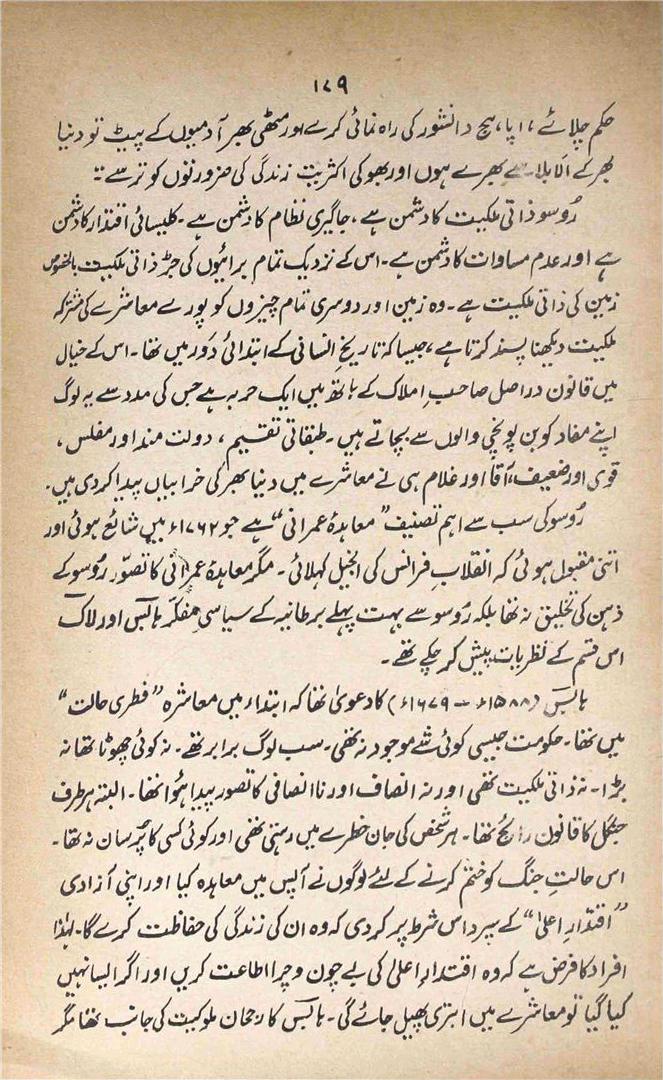 ۱۷۹
حکم چلائے، اپاہج دانشور کی راہ نمائی کرے اور مٹھی بھر آدمیوں کے پیٹ تو دنیا
بھر کے الا بلا سے بھرے ہوں اور بھوکی اکثریت زندگی کی ضرورتوں کو ترسے"۔
رُوسو ذاتی ملکیت کا دشمن ہے، جاگیری نظام کا دشمن ہے۔ کلیسائی اقتدار کا دشمن
ہے اور عدم مساوات کا دشمن ہے۔ اس کے نزدیک تمام برائیوں کی جڑ ذاتی ملکیت بالخصوص
زمین کی ذاتی ملکیت ہے۔ وہ زمین اور دوسری تمام چیزوں کو پورے معاشرے کی مشترکہ
ملکیت دیکھنا پسند کرتا ہے، جیسا کہ تاریخِ انسانی کے ابتدائی دَور میں تھا۔ اس کے خیال
میں قانون دراصل صاحبِ املاک کے ہاتھ میں ایک حربہ ہے جس کی مدد سے یہ لوگ
اپنے مفاد کو بن پونجی والوں سے بچاتے ہیں۔ طبقاتی تقسیم، دولت مند اور مفلس،
قوی اور ضعیف، آقا اور غلام ہی نے معاشرے میں دنیا بھر کی خرابیاں پیدا کر دی ہیں۔
رُوسو کی سب سے اہم تصنیف "معاہدۂ عمرانی" ہے جو ۱۷۶۲ء میں شائع ہوئی اور
اتنی مقبول ہوئی کہ انقلابِ فرانس کی انجیل کہلائی۔ مگر معاہدۂ عمرانی کا تصوّر رُوسو کے
ذہن کی تخلیق نہ تھا بلکہ رُوسو سے بہت پہلے برطانیہ کے سیاسی مفکّر ہابس اور لاک
اس قسم کے نظریات پیش کر چکے تھے۔
ہابس (۱۵۸۸ء — ۱۶۷۹ء) کا دعویٰ تھا کہ ابتداء میں معاشرہ "فطری حالت"
میں تھا۔ حکومت جیسی کوئی شے موجود نہ تھی۔ سب لوگ برابر تھے۔ نہ کوئی چھوٹا تھا نہ
بڑا۔ نہ ذاتی ملکیت تھی اور نہ انصاف اور ناانصافی کا تصور پیدا ہُوا تھا۔ البتہ ہر طرف
جنگل کا قانون رائج تھا۔ ہر شخص کی جان خطرے میں رہتی تھی اور کوئی کسی کا پُرسان نہ تھا۔
اس حالتِ جنگ کو ختم کرنے کے لئے لوگوں نے آپس میں معاہدہ کیا اور اپنی آزادی
"اقتدارِ اعلیٰ" کے سپرد اس شرط پر کر دی کہ وہ ان کی زندگی کی حفاظت کرے گا۔ لہٰذا
افراد کا فرض ہے کہ وہ اقتدارِ اعلیٰ کی بے چون و چرا اطاعت کریں اور اگر ایسا نہیں
کیا گیا تو معاشرے میں ابتری پھیل جائے گی۔ ہابس کا رجحان ملوکیت کی جانب تھا مگر